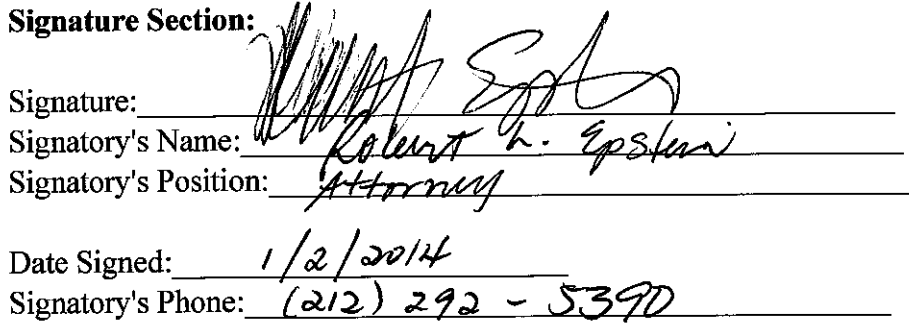 Signature Section:
Signature:
Signatory's Name: Robert L. Epstein
Signatory's Position: Attorney
Date Signed: 1/2/2014
Signatory's Phone: (212) 292 - 5390